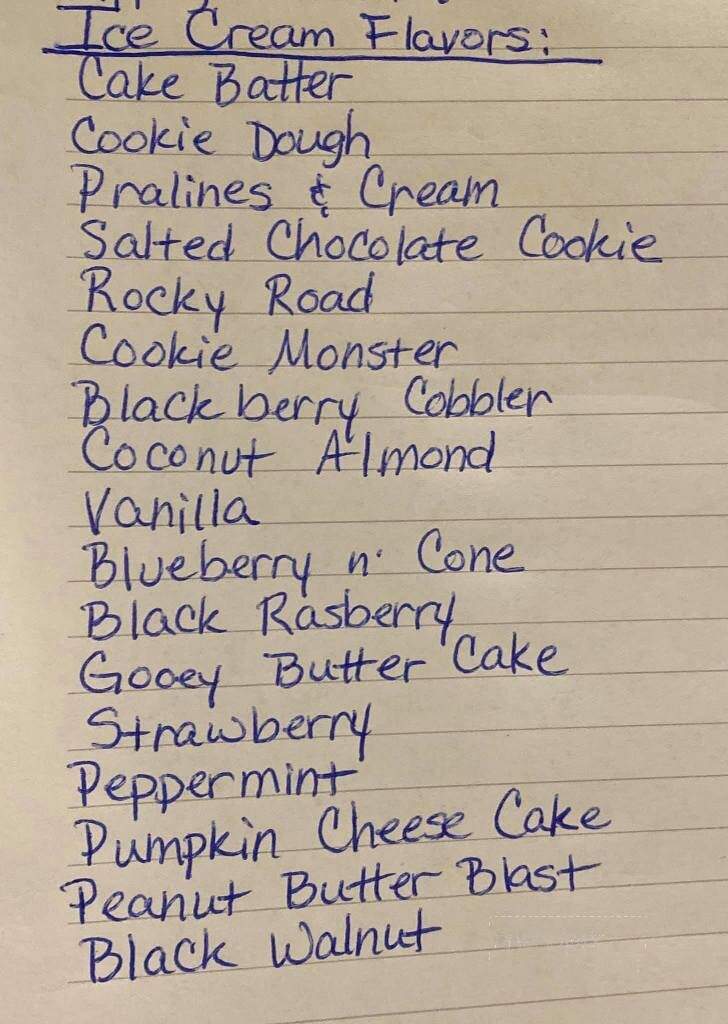 Ice Cream Flavors:
Cake Batter
Cookie Dough
Pralines & Cream
Salted Chocolate Cookie
Rocky Road
Cookie Monster
Blackberry Cobbler
Coconut Almond
Vanilla
Blueberry n' Cone
Black Rasberry
Gooey Butter Cake
Strawberry
Peppermint
Pumpkin Cheese Cake
Peanut Butter Blast
Black Walnut